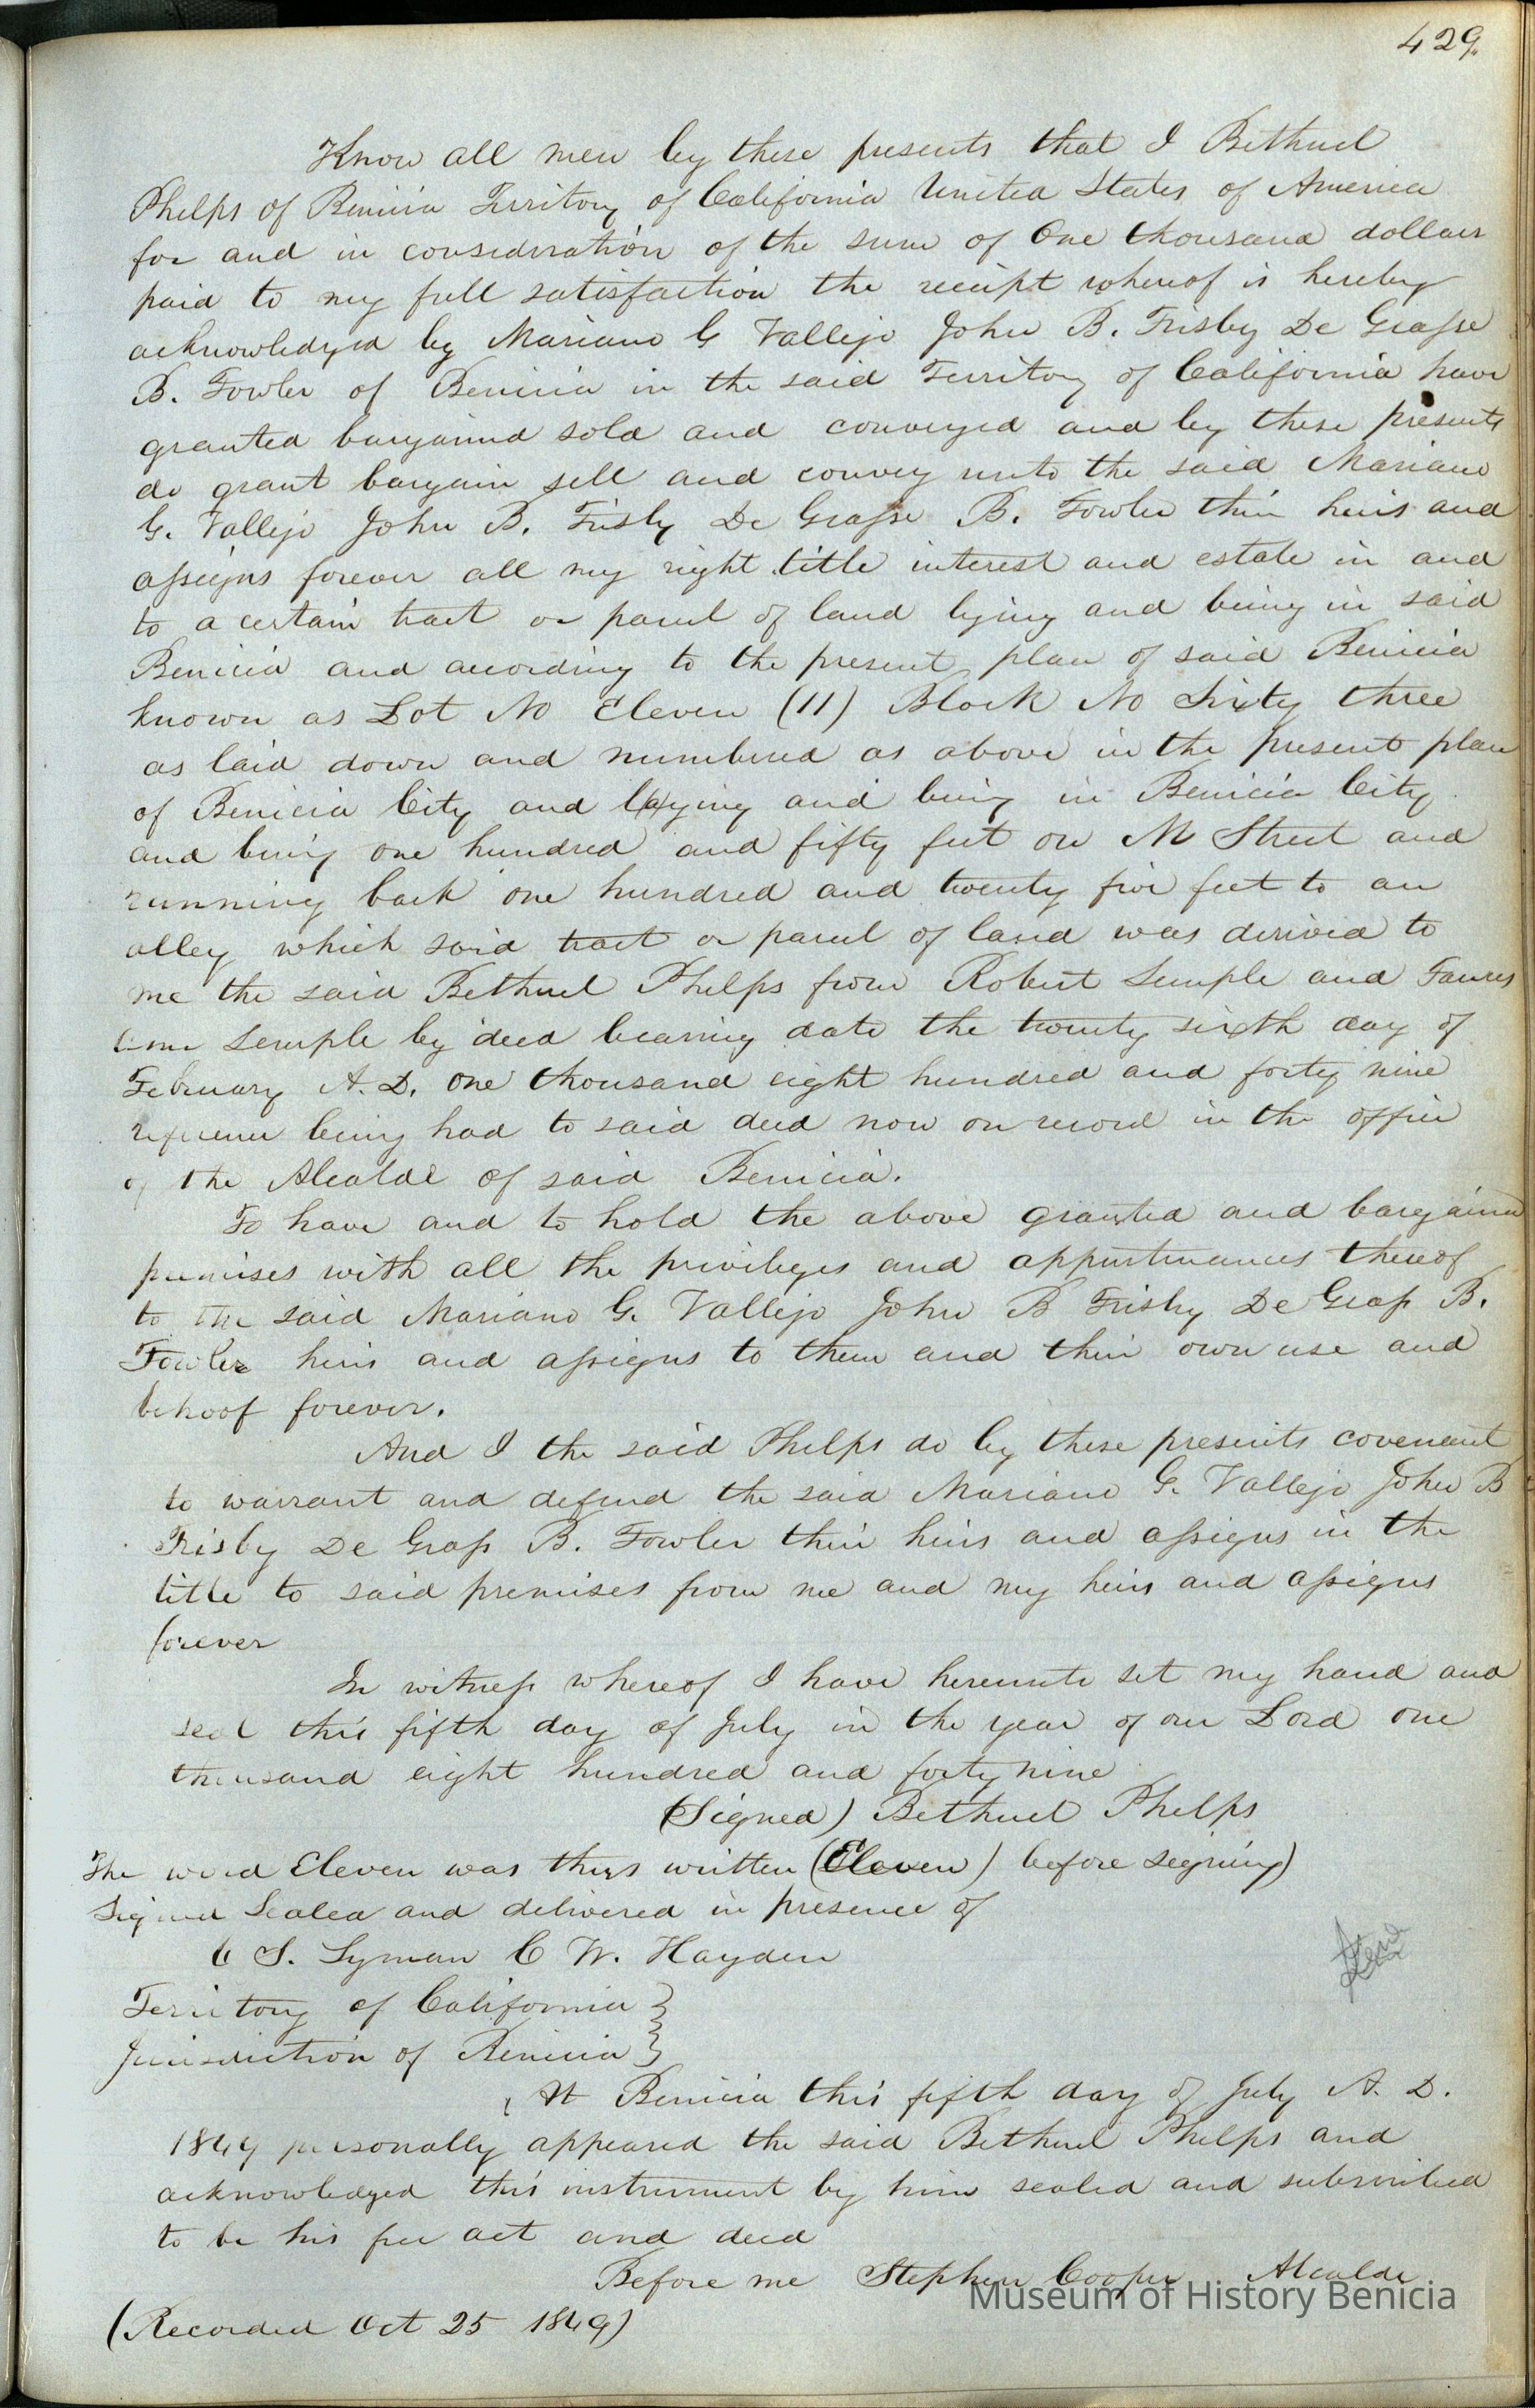 429.
Know all men by these presents that I Bethuel
Phelps of Benicia Territory of California United States of America
for and in consideration of the sum of One thousand dollars
paid to my full satisfaction the receipt whereof is hereby
acknowledged by Mariano G Vallejo John B. Frisby De Grasse
B. Fowler of Benicia in the said Territory of California have
granted bargained sold and conveyed and by these presents
do grant bargain sell and convey unto the said Mariano
G. Vallejo John B. Frisby De Grasse B. Fowler their heirs and
assigns forever all my right title interest and estate in and
to a certain tract or parcel of land lying and being in said
Benicia and according to the present plan of said Benicia
known as Lot No Eleven (11) Block No Sixty three
as laid down and numbered as above in the present plan
of Benicia City and l(a)ying and being in Benicia City
and being one hundred and fifty feet on M Street and
running back one hundred and twenty five feet to an
alley which said tract or parcel of land was derived to
me the said Bethuel Phelps from Robert Semple and Frances
Semple by deed bearing date the twenty sixth day of
February A. D. one thousand eight hundred and forty nine
reference being had to said deed now on record in the office
of the Alcalde of said Benicia.
To have and to hold the above granted and bargained
premises with all the privileges and appurtenances thereof
to the said Mariano G. Vallejo John B Frisby De Grass B.
Fowler heirs and assigns to them and their own use and
behoof forever.
And I the said Phelps do by these presents covenant
to warrant and defend the said Mariano G. Vallejo John B
Frisby De Grass B. Fowler their heirs and assigns in the
title to said premises from me and my heirs and assigns
forever
In witness whereof I have hereunto set my hand and
seal this fifth day of July in the year of our Lord one
thousand eight hundred and forty nine
(Signed) Bethuel Phelps
The word Eleven was thus written (Eleven) before signing)
Signed Sealed and delivered in presence of
C S. Lyman C W. Hayden
Territory of California }
Jurisdiction of Benicia }
At Benicia this fifth day of July A. D.
1849 personally appeared the said Bethuel Phelps and
acknowledged this instrument by him sealed and subscribed
to be his free act and deed
Before me Stephen Cooper Alcalde
(Recorded Oct 25 1849)
Museum of History Benicia